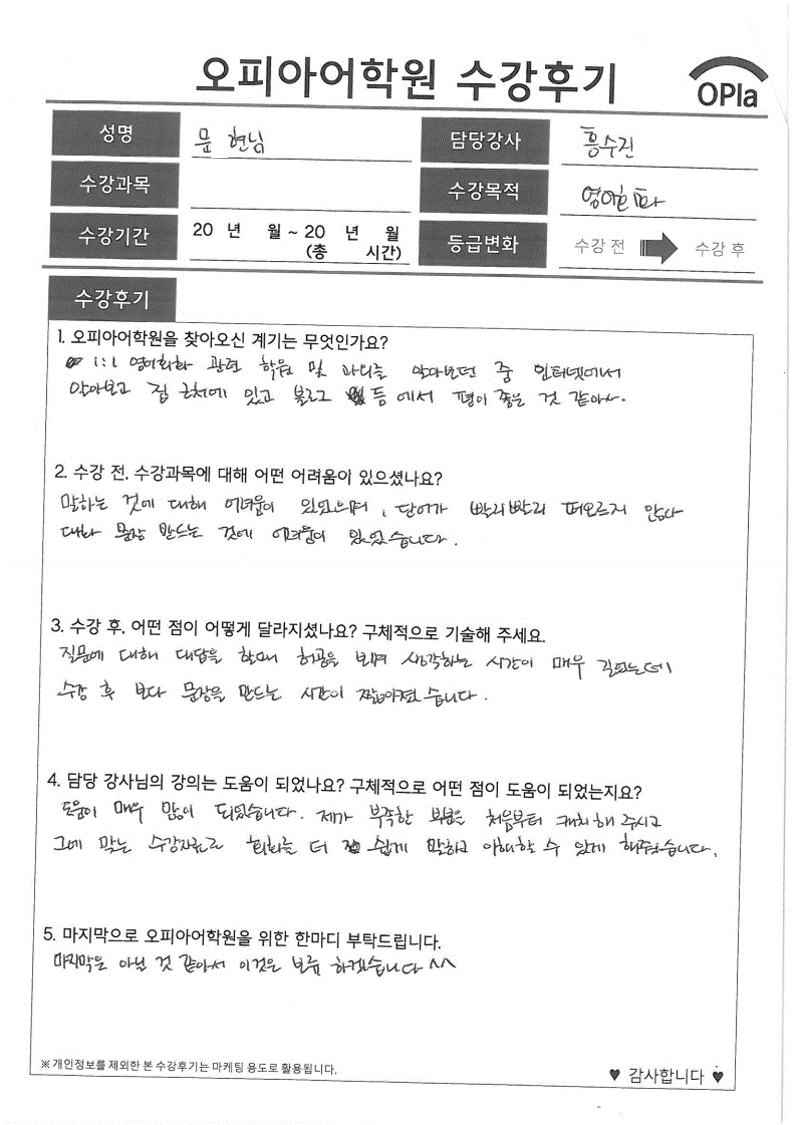 오피아어학원 수강후기
OPIa
성명 문 현님 담당강사 홍수진
수강과목 수강목적 영어회화
수강기간 20 년 월 ~ 20 년 월 등급변화 수강 전 수강 후
(총 시간)
수강후기
1. 오피아어학원을 찾아오신 계기는 무엇인가요?
1:1 영어회화 관련 학원 및 과외를 알아보던 중 인터넷에서
알아보고 집 근처에 있고 블로그 등에서 평이 좋은 것 같아서.
2. 수강 전, 수강과목에 대해 어떤 어려움이 있으셨나요?
말하는 것에 대해 어려움이 있었으며, 단어가 빨리빨리 떠오르지 않는다
문장 만드는 것에 어려움이 있었습니다.
3. 수강 후, 어떤 점이 어떻게 달라지셨나요? 구체적으로 기술해 주세요.
질문에 대해 대답을 할때 허공을 보며 생각하는 시간이 매우 길었는데
수강 후 보다 문장을 만드는 시간이 짧아졌습니다.
4. 담당 강사님의 강의는 도움이 되었나요? 구체적으로 어떤 점이 도움이 되었는지요?
도움이 매우 많이 되었습니다. 제가 부족한 부분을 처음부터 캐치해 주시고
그에 맞는 수강자료로 회화를 더 쉽게 말하고 이해할 수 있게 해주셨습니다.
5. 마지막으로 오피아어학원을 위한 한마디 부탁드립니다.
마지막은 아닌 것 같아서 이것은 보류 하겠습니다 ^^
※ 개인정보를 제외한 본 수강후기는 마케팅 용도로 활용됩니다.
♥ 감사합니다 ♥